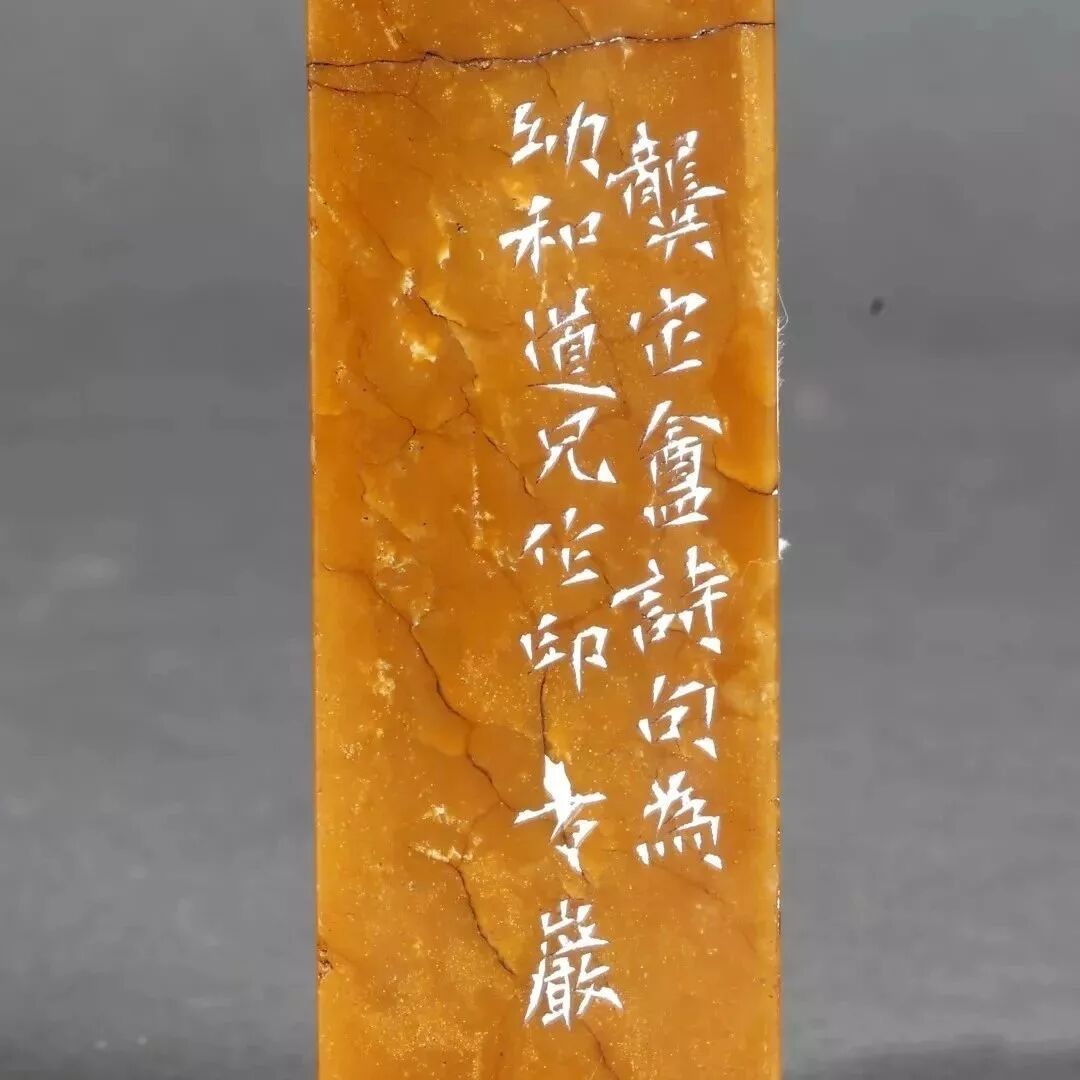 龔定盦詩句為
幼和道兄作印 孝巖